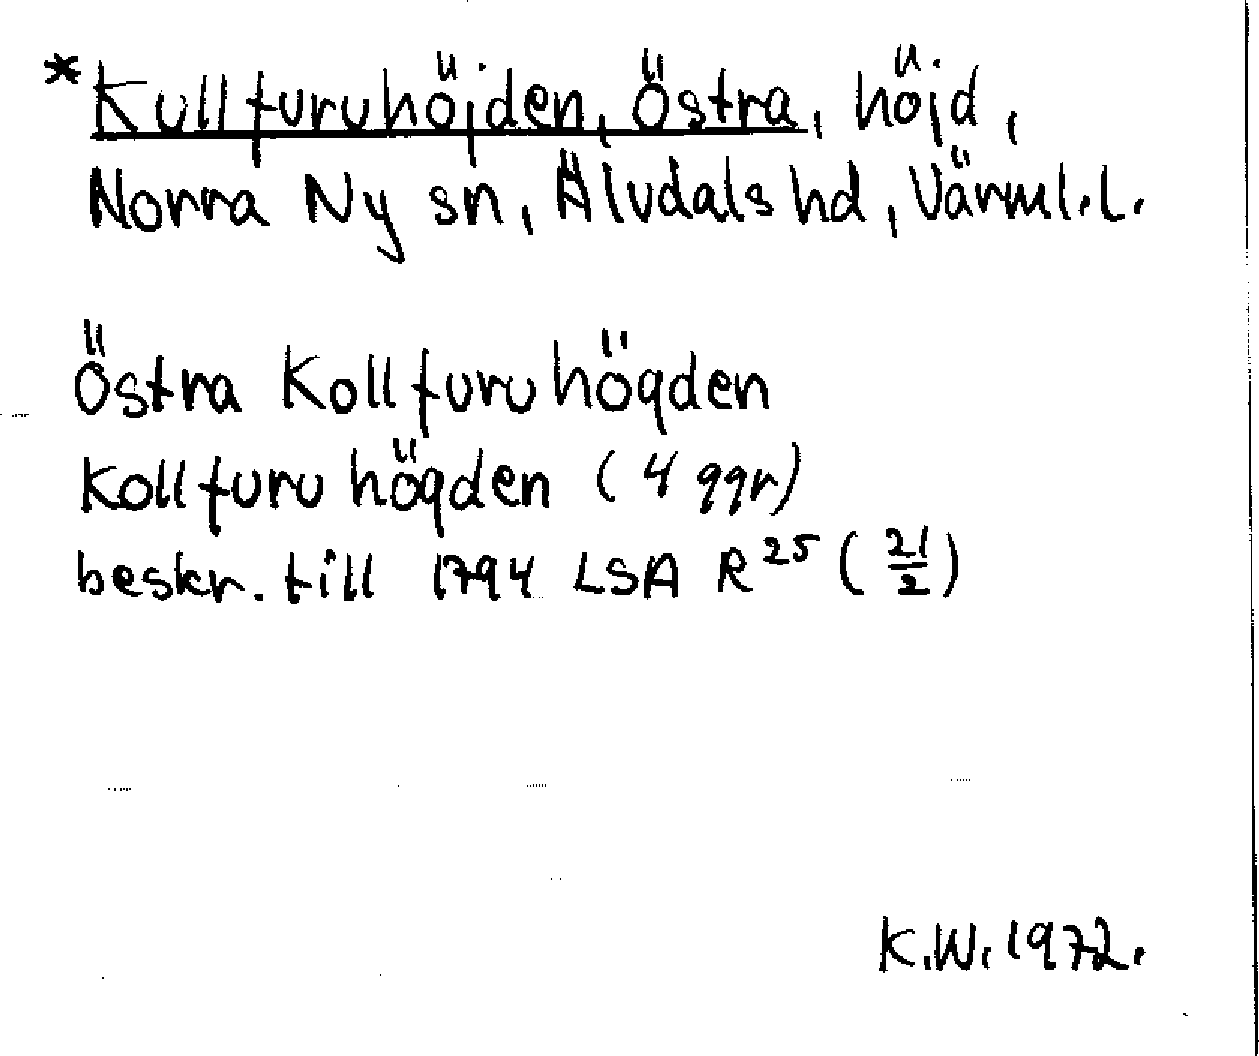 *Kullfuruhöjden, Östra, höjd,
Norra Ny sn, Älvdals hd, Värml.l.
Östra Kollfuruhögden
Kollfuruhögden (4 ggr)
beskr. till 1794 LSA R 25 (21/2)
K.W. 1972.